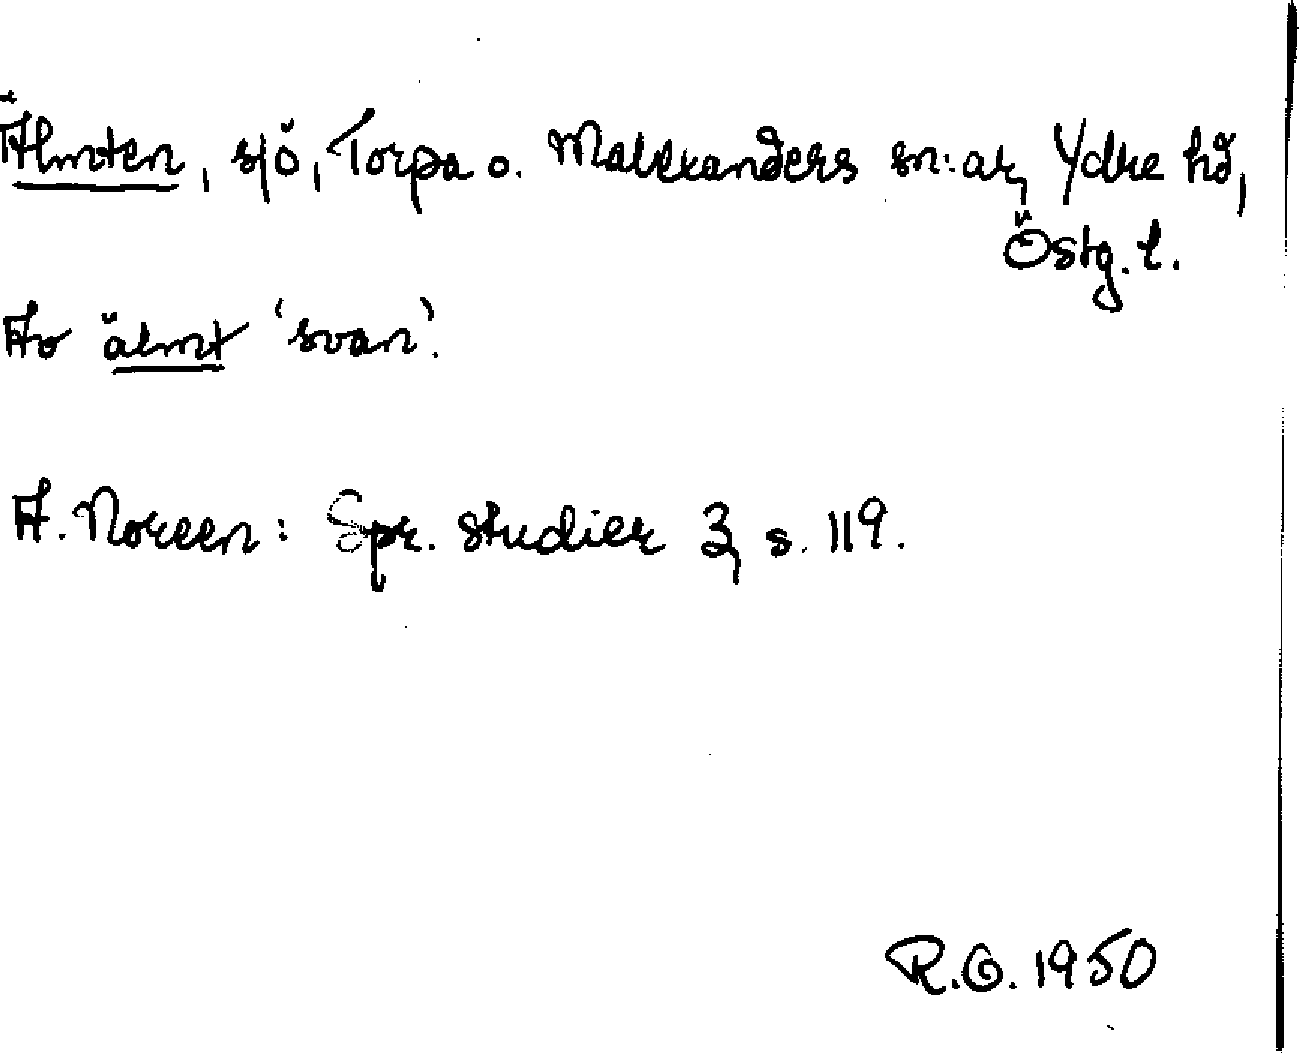 Älmten, sjö, Torpa o. Malexanders sn:ar, Ydre hd,
Östg. l.
Av älmt 'svan'.
A. Noreen: Spr. studier 3, s. 119.
R.O. 1950